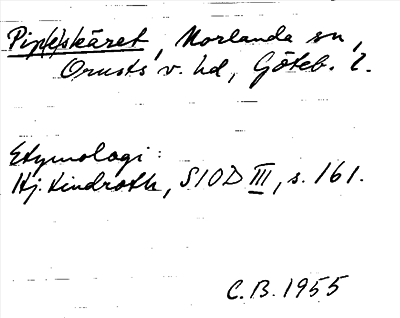 Pip(e)skäret, Morlanda sn,
Orusts v. hd, Göteb. l.
Etymologi:
Hj. Lindroth, SIOD III, s. 161.
C.B. 1955